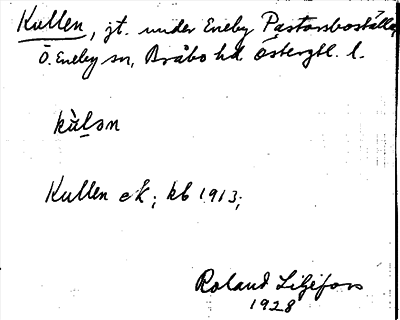 Kullen, jt. under Eneby Pastorsboställe,
Ö. Eneby sn, Bråbo hd Östergtl. l.
kùlən
Kullen ek; kb 1913;
Roland Liljefors
1928